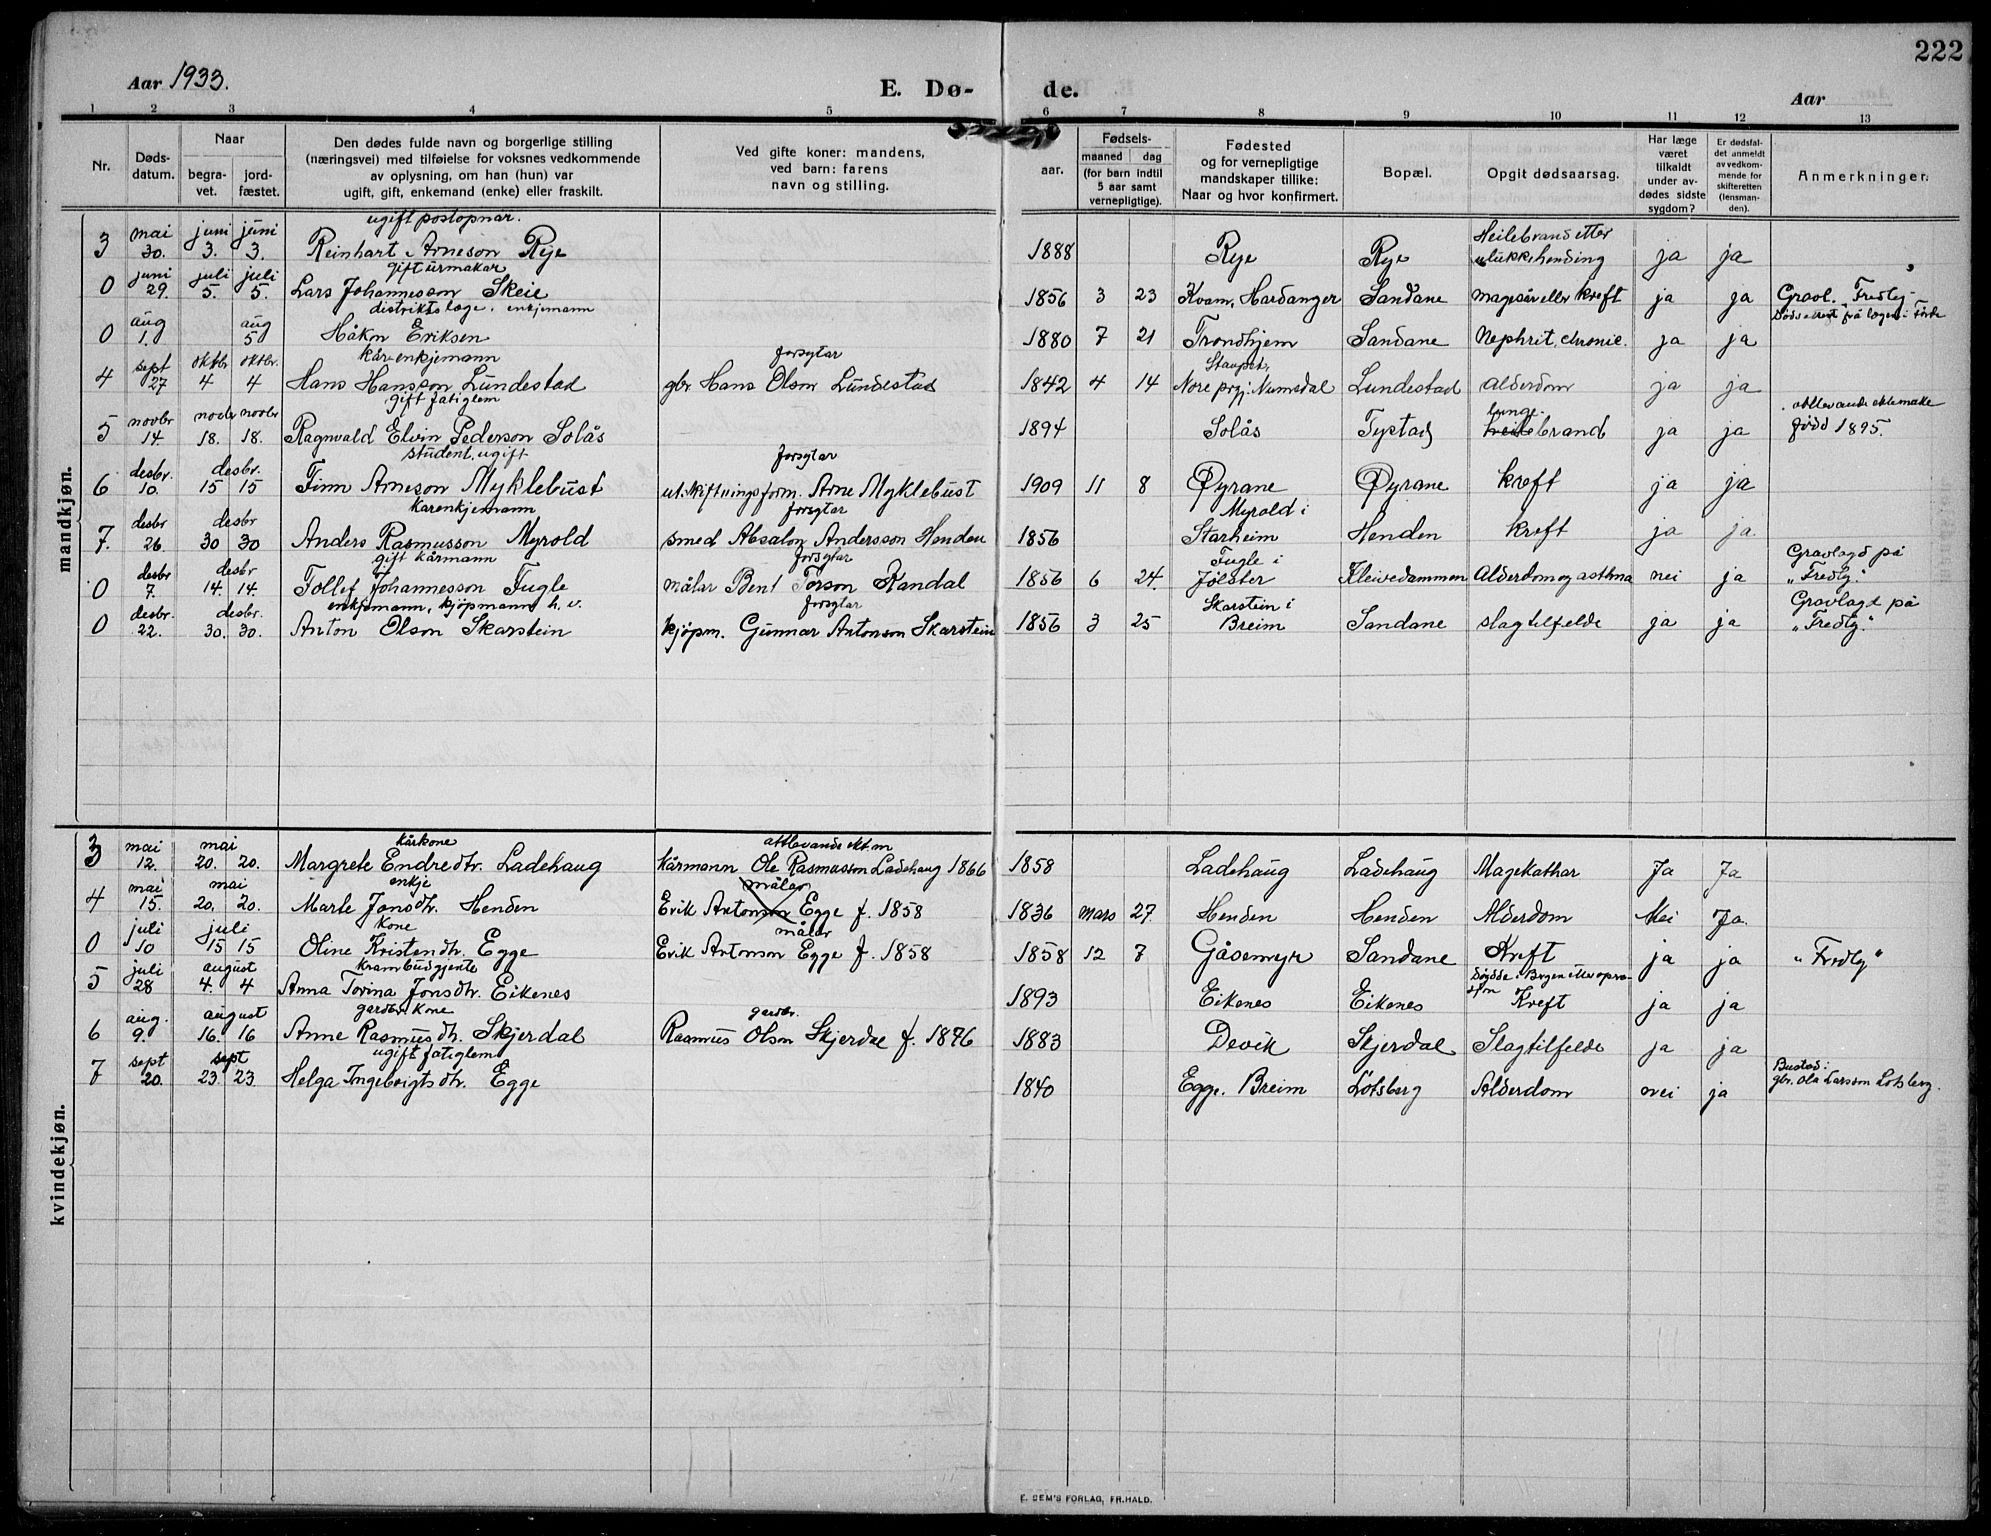 222
Aar 1933. E. Dø- de. Aar
1 2 3 4 5 6 7 8 9 10 11 12 13
Nr. Døds-datum. Naar begra-vet. jord-fæstet. Den dødes fulde navn og borgerlige stilling (næringsvei) med tilføielse for voksnes vedkommende av oplysning, om han (hun) var ugift, gift, enkemand (enke) eller fraskilt. Ved gifte koner: mandens, ved barn: farens navn og stilling. aar. Fødsels- maaned dag (for barn indtil 5 aar samt vernepligtige). Fødested og for vernepligtige mandskaper tillike: Naar og hvor konfirmert. Bopæl. Opgit dødsaarsag. Har læge været tilkaldt under av-dødes sidste sygdom? Er dødsfal-det anmeldt av vedkom-mende for skifteretten (lensman-den). Anmerkninger.
mandkjøn.
ugift postopnar.
3 mai 30. juni 3. juni 3. Reinhart Arneson Rye 1888 Rye Rye Heilebrand etter ulukkehending ja ja
gift urmakar
0 juni 29. juli 5. juli 5. Lars Johannesson Skeie 1856 3 23 Kvam, Hardanger Sandane magesår eller kreft ja ja Gravl. "Fredly"
distriktslæge, enkjemann Dødsattest frå lægen i Førde
0 aug 1. aug 5 Håkon Eriksen 1880 7 21 Trondhjem Sandane Nephrit. chronic. ja ja
kår-enkjemann forsytar
4 sept 27 oktbr 4 oktbr. 4 Hans Hansson Lundestad gbr Hans Olson Lundestad 1842 4 14 Nore prgj. Numedal Lundestad alderdom ja ja
gift fatiglem
5 novbr 14. novbr 18. novbr 18. Ragnvald Elvin Pederson Solås 1894 Solås Tystad lunge- heilebrand ja ja attlevande ektemake fødd 1895.
student, ugift forsytar
6 desbr. 10. desbr. 15 15 Finn Arneson Myklebust utskiftningsform. Arne Myklebust 1909 11 8 Øyrane Øyrane kreft ja ja
kårenkjemann forsytar
7. desbr 26. desbr 30 30 Anders Rasmusson Myrold smed Absalon Andersson Henden 1856 Myrold i Starheim Henden kreft ja ja.
gift kårmann forsytar
0 desbr 7. desbr 14. 14. Tollef Johannesson Fugle målar Bent Torson Kandal 1856 6 24. Fugle i Jølster Kleivedammen Alderdom og asthma nei ja Gravlagd på "Fredly."
enkjemann, kjøpmann h. v. forsytar
0 desbr. 22. desbr. 30. 30. Anton Olson Skarstein kjøpm. Gunnar Antonson Skarstein 1856 3 25 Skarstein i Breim Sandane slagtilfelde ja ja Gravlagd på "Fredly."
kvindekjøn.
kårkone attlevande ekt.m
3 mai 12. mai 20. 20. Margrete Endredtr. Ladehaug kårmann Ole Rasmusson Ladehaug 1866 1858 Ladehaug Ladehaug Magekathar Ja Ja
enkje målar
4 mai 15. mai 20. 20. Marte Jonsdtr. Henden Erik Antonson Egge f. 1858 1836 mars 27. Henden Henden Alderdom Nei Ja.
kone målar
0 juli 10 juli 15 15 Oline Kristendtr. Egge Erik Antonson Egge f. 1858 1858 12 7 Gåsemyr Sandane Kreft ja ja "Fredly"
krambudgjente
5 juli 28 august 4. 4 Anna Torina Jonsdtr. Eikenes 1893 Eikenes Eikenes Døydde i Bergen etter operasjon Kreft ja ja
gardbr. kone gardbr.
6 aug. 9. august 16. 16 Anne Rasmusdtr. Skjerdal Rasmus Olson Skjerdal f. 1876 1883 Devik Skjerdal Slagtilfelde ja ja
ugift fatiglem
7 sept 20. sept 23. 23. Helga Ingebrigtsdtr. Egge 1840 Egge. Breim Lotsberg Alderdom nei ja Bustad: gbr. Ola Larsson Lotsberg.
E. SEM'S FORLAG, FR.HALD.